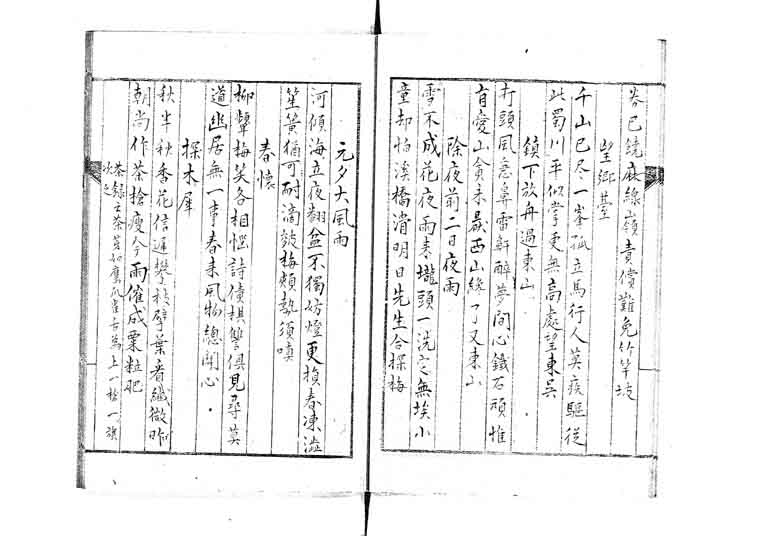 容已鐃麻線嶺責償難免竹竿坡
望鄉臺
千山已盡一峯孤立馬行人莫疾驅從
此蜀川平似掌更無高處望東吳
鎮下放舟過東山
打頭風急鼻雷鼾醉夢間心鐵石頑惟
有愛山貪未厭西山緣了又東山
除夜前二日夜雨
雪不成花夜雨來壠頭一洗定無埃小
童却怕溪橋滑明日先生合探梅
元夕大風雨
河傾海立夜翻盆不獨妨燈更損春凍澁
笙簧猶可耐滴皴梅頰勢須嗔
春懷
柳顰梅笑各相惱詩債棋讐俱見尋莫
道幽居無一事春來風物總關心
探木犀
秋半秋香花信遲攀枝擘葉看纖微昨
朝尚作茶槍瘦今雨催成粟粒肥
茶錄云茶芽如鷹爪雀舌爲上一槍一旗
次之